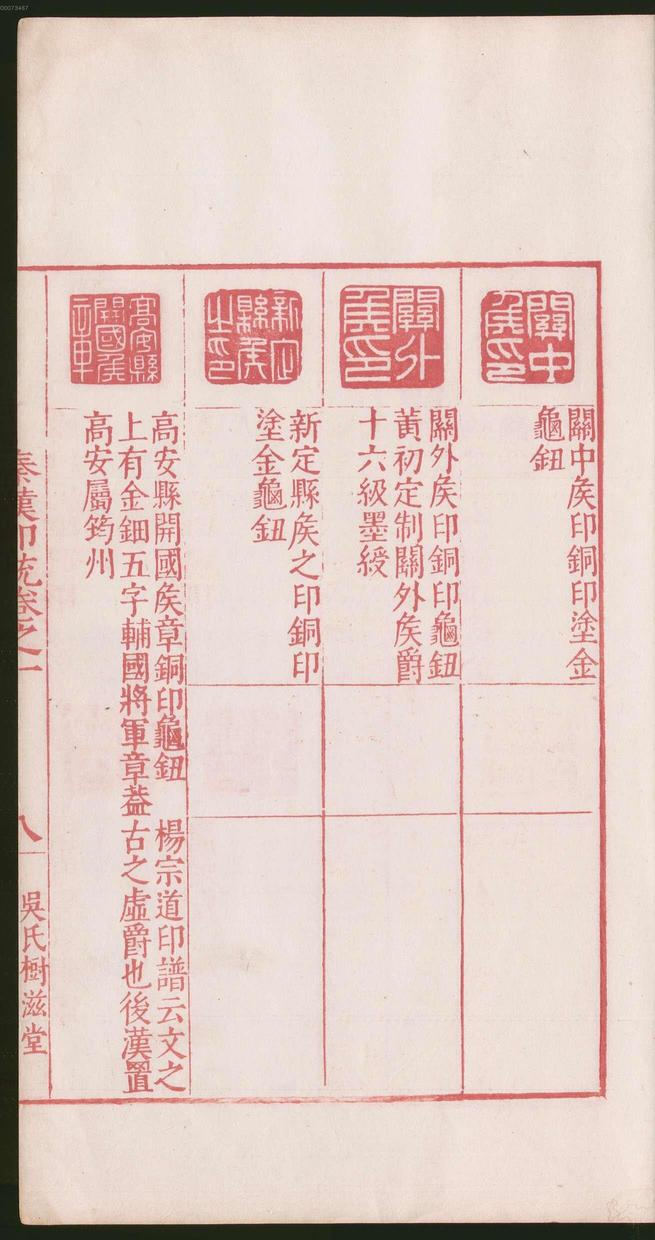 00073467
關中
矦印
關中矦印銅印塗金
龜鈕
關外
矦印
關外矦印銅印龜鈕
黃初定制關外矦爵
十六級墨綬
新定
縣矦
之印
新定縣矦之印銅印
塗金龜鈕
高安縣
開國矦
高安縣開國矦章銅印龜鈕　楊宗道印譜云文之
上有金鈿五字輔國將軍章葢古之虛爵也後漢置
高安屬筠州
秦漢印統卷之一
八
吳氏樹滋堂